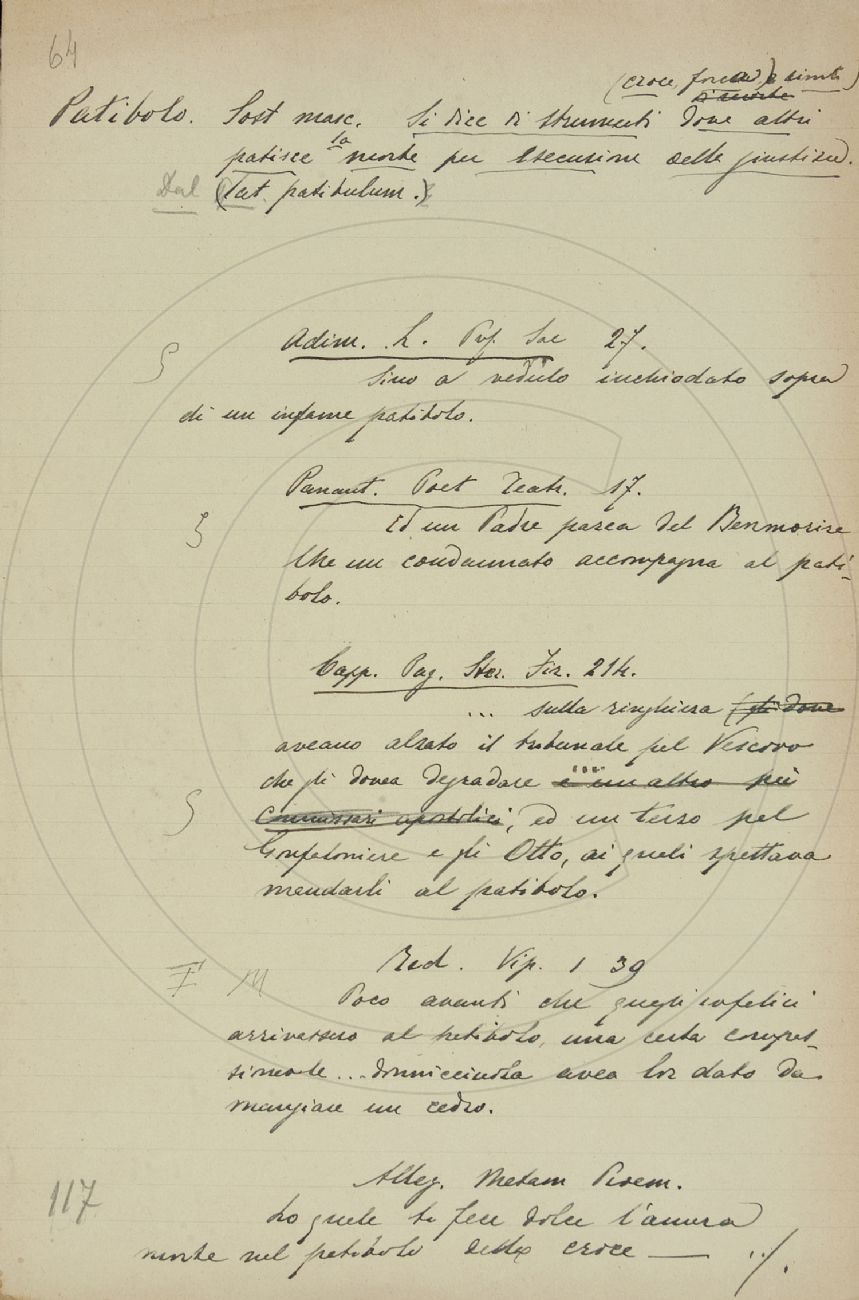 64
(croce, forca, e simili)
a morte
Patibolo. Sost masc. Si dice di strumenti dove altri
patisce la morte per esecuzione della giustizia.
Dal (Lat. patibulum.)
Adim. L. Pros. Sac 27.
Sino a vedulo inchiodato sopra
di un infame patibolo.
Panant. Poet Teatr. 17.
Ed un Padre parea del Benmorire
Che un condannato accompagna al pati-
bolo.
Capp. Pag. Stor. Fir. 214.
... sulla ringhiera (gli dove
aveano alzato il tribunale pel Vescovo
che gli dovea degradare ... e un altro pei
Commissari apostolici, ed un terzo pel
Gonfaloniere e gli Otto, ai quali spettava
mandarli al patibolo.
Red. Vip. 1 39
F M
Poco avanti che quegli infelici
arrivassero al patibolo, una certa compas-
sionevole... donnicciuola avea lor dato da
mangiare un cedro.
Alleg. Metam Pirem.
117
Lo quale ti fece dolce l'amara
morte nel patibolo della croce — ../.